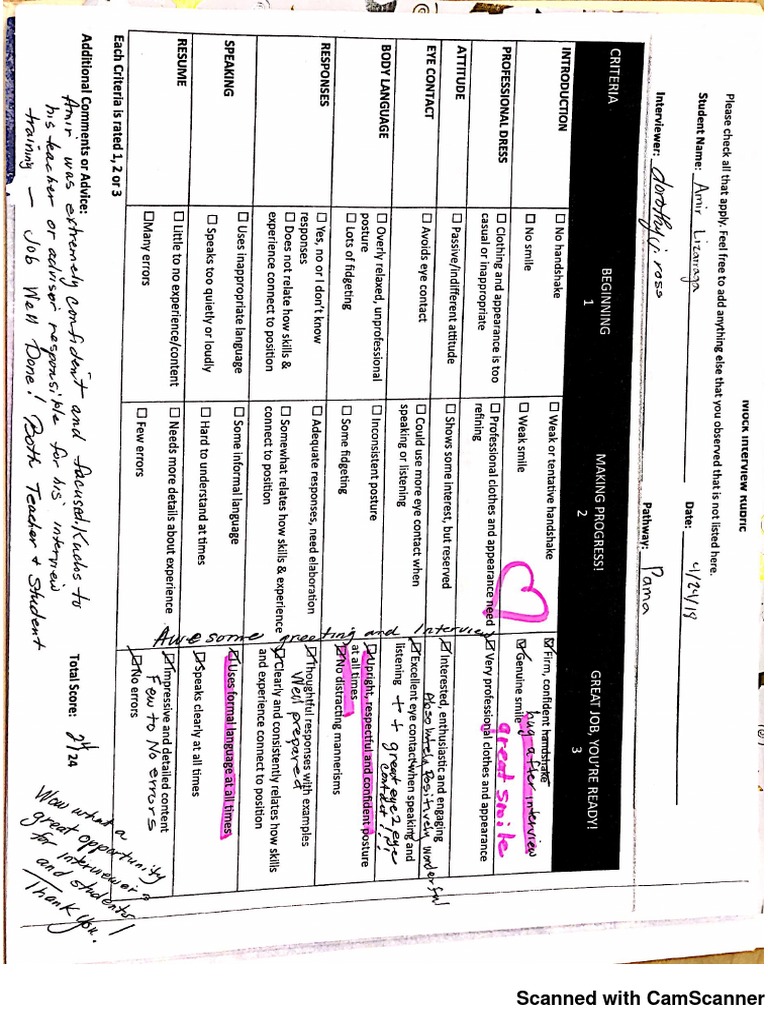 Mock Interview Rubric
Please check all that apply. Feel free to add anything else that you observed that is not listed here.
Student Name: Amir Lizarraga Date: 4/24/19
Interviewer: dorothy j. ross Pathway: Pama
CRITERIA BEGINNING 1 MAKING PROGRESS! 2 GREAT JOB, YOU'RE READY! 3
INTRODUCTION
☐ No handshake
☐ No smile
☐ Weak or tentative handshake
☐ Weak smile
☑ Firm, confident handshake
hug after interview
☑ Genuine smile
great smile
PROFESSIONAL DRESS
☐ Clothing and appearance is too
casual or inappropriate
☐ Professional clothes and appearance need
refining
☑ Very professional clothes and appearance
ATTITUDE
☐ Passive/indifferent attitude
☐ Shows some interest, but reserved
☑ Interested, enthusiastic and engaging
Absolutely Positively wonderful
EYE CONTACT
☐ Avoids eye contact
☐ Could use more eye contact when
speaking or listening
☑ Excellent eye contact when speaking and
listening ++ great eye 2 eye
contact!!
BODY LANGUAGE
☐ Overly relaxed, unprofessional
posture
☐ Lots of fidgeting
☐ Inconsistent posture
☐ Some fidgeting
☑ Upright, respectful and confident posture
at all times
☑ No distracting mannerisms
RESPONSES
☐ Yes, no or I don't know
responses
☐ Does not relate how skills &
experience connect to position
☐ Adequate responses, need elaboration
☐ Somewhat relates how skills & experience
connect to position
☑ Thoughtful responses with examples
Well prepared
☑ Clearly and consistently relates how skills
and experience connect to position
SPEAKING
☐ Uses inappropriate language
☐ Speaks too quietly or loudly
☐ Some informal language
☐ Hard to understand at times
☑ Uses formal language at all times
☑ Speaks clearly at all times
RESUME
☐ Little to no experience/content
☐ Many errors
☐ Needs more details about experience
☐ Few errors
☑ Impressive and detailed content
Few to No errors
☑ No errors
Awesome greeting and Interview
Each Criteria is rated 1, 2 or 3 Total Score: 24/24
Additional Comments or Advice:
Amir was extremely confident and focused. Kudos to
his teacher or advisor responsible for his interview
training — Job Well Done! Both Teacher & Student
Wow what a
great opportunity
for interviewers
and students!
Thank you.
Scanned with CamScanner